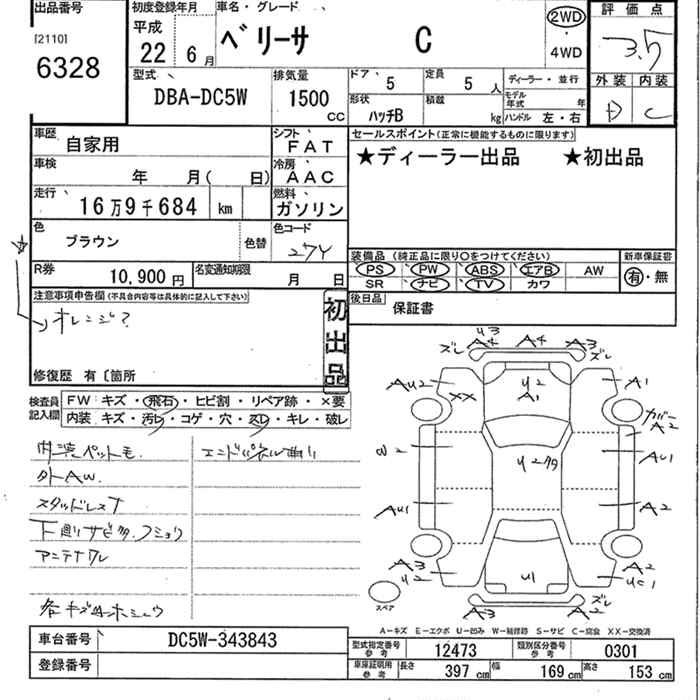 出品番号 初度登録年月 車名・グレード 評価点
[2110] 平成 ベリーサ C 2WD 3.5
6328 22 6月 4WD
外装 内装
型式 排気量 ドア 5 定員 5人 ディーラー・並行
DBA-DC5W 1500 CC 形状 ハッチB 積載 kg モデル年式 年
ハンドル 左・右 D C
車歴 自家用 シフト FAT セールスポイント(正常に機能するものに限ります)
★ディーラー出品 ★初出品
車検 年 月( 日) 冷房 AAC
走行 16万9千684 km 燃料 ガソリン
色 ブラウン 色替 色コード 27Y
装備品 (純正品に限り○をつけてください) 新車保証書
PS PW ABS エアB AW 有・無
SR ナビ TV カワ
R券 10,900円 名変通知期限 月 日
後日品 保証書
注意事項申告欄(不具合内容等は具体的に記入して下さい)
オレンジ?
初出品
修復歴 有〔箇所
検査員記入欄 FW キズ・飛石・ヒビ割・リペア跡・×要
内装 キズ・汚レ・コゲ・穴・スレ・キレ・破レ
内装ペット毛 エンドパネル曲り
外AW
スタッドレス
下廻サビタ.フショク
アンテナワレ
各キズ
U3
ズレ A4 A4 A3 ズレ
AU2 U2 A1 A1
XX カバー A2
U2タタ AU1
AU1 A2
A3 U2 U1 A2 UC1
スペア A3 A2
A-キズ E-エクボ U-凹み W-補修跡 S-サビ C-腐食 XX-交換済
車台番号 DC5W-343843 型式指定番号 参考 12473 類別区分番号 参考 0301
登録番号 車庫証明用 参考 長さ 397 cm 幅 169 cm 高さ 153 cm